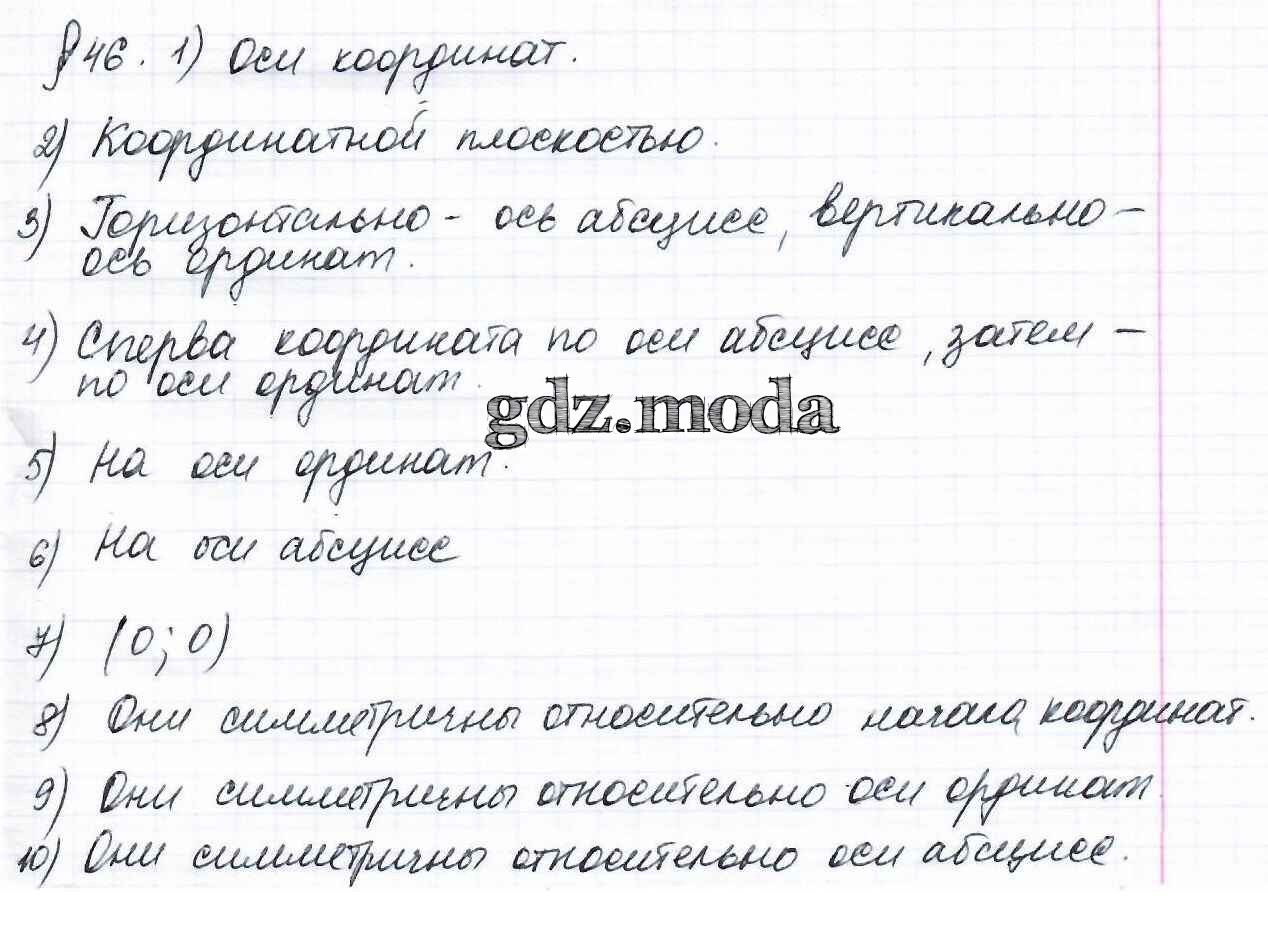 § 46. 1) Оси координат.
2) Координатной плоскостью.
3) Горизонтально - ось абсцисс, вертикально -
ось ординат.
4) Сперва координата по оси абсцисс, затем -
по оси ординат.
gdz.moda
5) На оси ординат.
6) На оси абсцисс
7) (0; 0)
8) Они симметричны относительно начала координат.
9) Они симметричны относительно оси ординат.
10) Они симметричны относительно оси абсцисс.